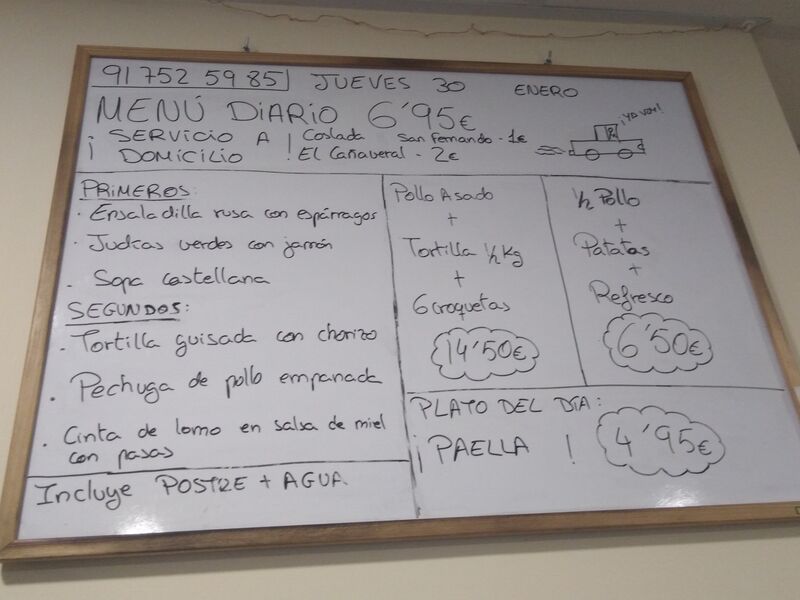 91 752 59 85 JUEVES 30 ENERO
MENÚ DIARIO 6'95€
¡YA VOY!
¡ SERVICIO A DOMICILIO !
Coslada San Fernando - 1€
El Cañaveral - 2€
PRIMEROS:
· Ensaladilla rusa con espárragos
· Judías verdes con jamón
· Sopa castellana
SEGUNDOS:
· Tortilla guisada con chorizo
· Pechuga de pollo empanada
· Cinta de lomo en salsa de miel
con pasas
Incluye POSTRE + AGUA.
Pollo Asado
+
Tortilla 1/2 Kg
+
6 croquetas
14'50€
1/2 Pollo
+
Patatas
+
Refresco
6'50€
PLATO DEL DÍA:
¡PAELLA!
4'95€